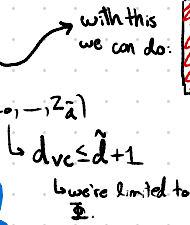 with this
we can do:
0, —, z_d̃)
↳ d_vc ≤ d̃+1
↳ we're limited to
Φ.